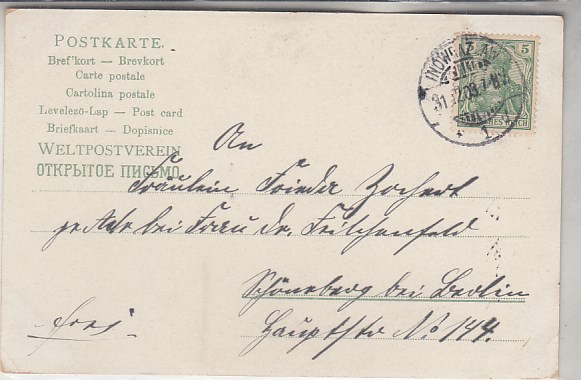 POSTKARTE.
Bref'kort — Brevkort
Carte postale
Cartolina postale
Levelező-Lap — Post card
Briefkaart — Dopisnice
WELTPOSTVEREIN
ОТКРЫТОЕ ПИСЬМО
INOWRAZLAW
31.12.03.
1
5
REICH
An
Fräulein Frieda Zochert
bei Frau Dr.
Schöneberg bei Berlin
Hauptstr No 144.
frei